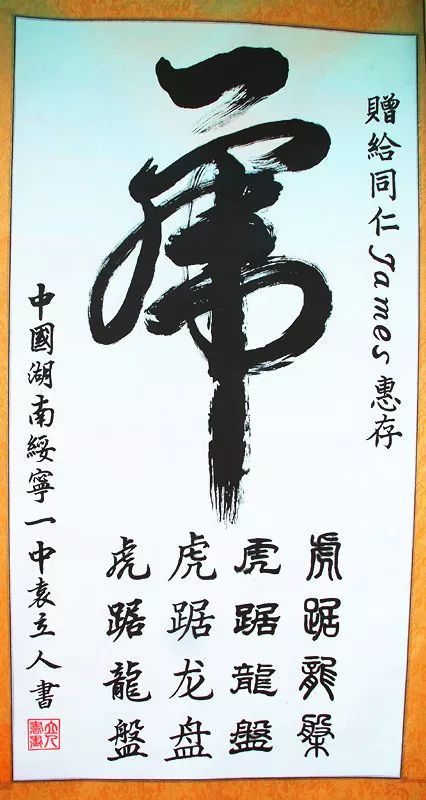 贈給同仁James惠存
虎
虎踞龍槃
虎踞龍盤
虎踞龙盘
虎踞龍盤
中國湖南綏寧一中袁立人書